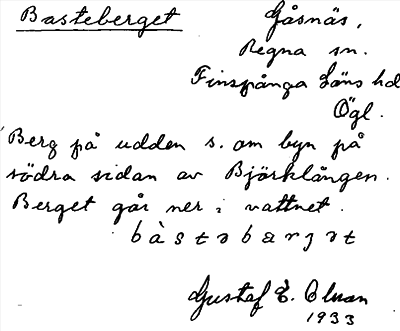 Basteberget
Gåsnäs,
Regna sn.
Finspånga Läns hd
Ögl.
Berg på udden s. om byn på
södra sidan av Björklången.
Berget går ner i vattnet.
bàstəbærjət
Gustaf E.
1933